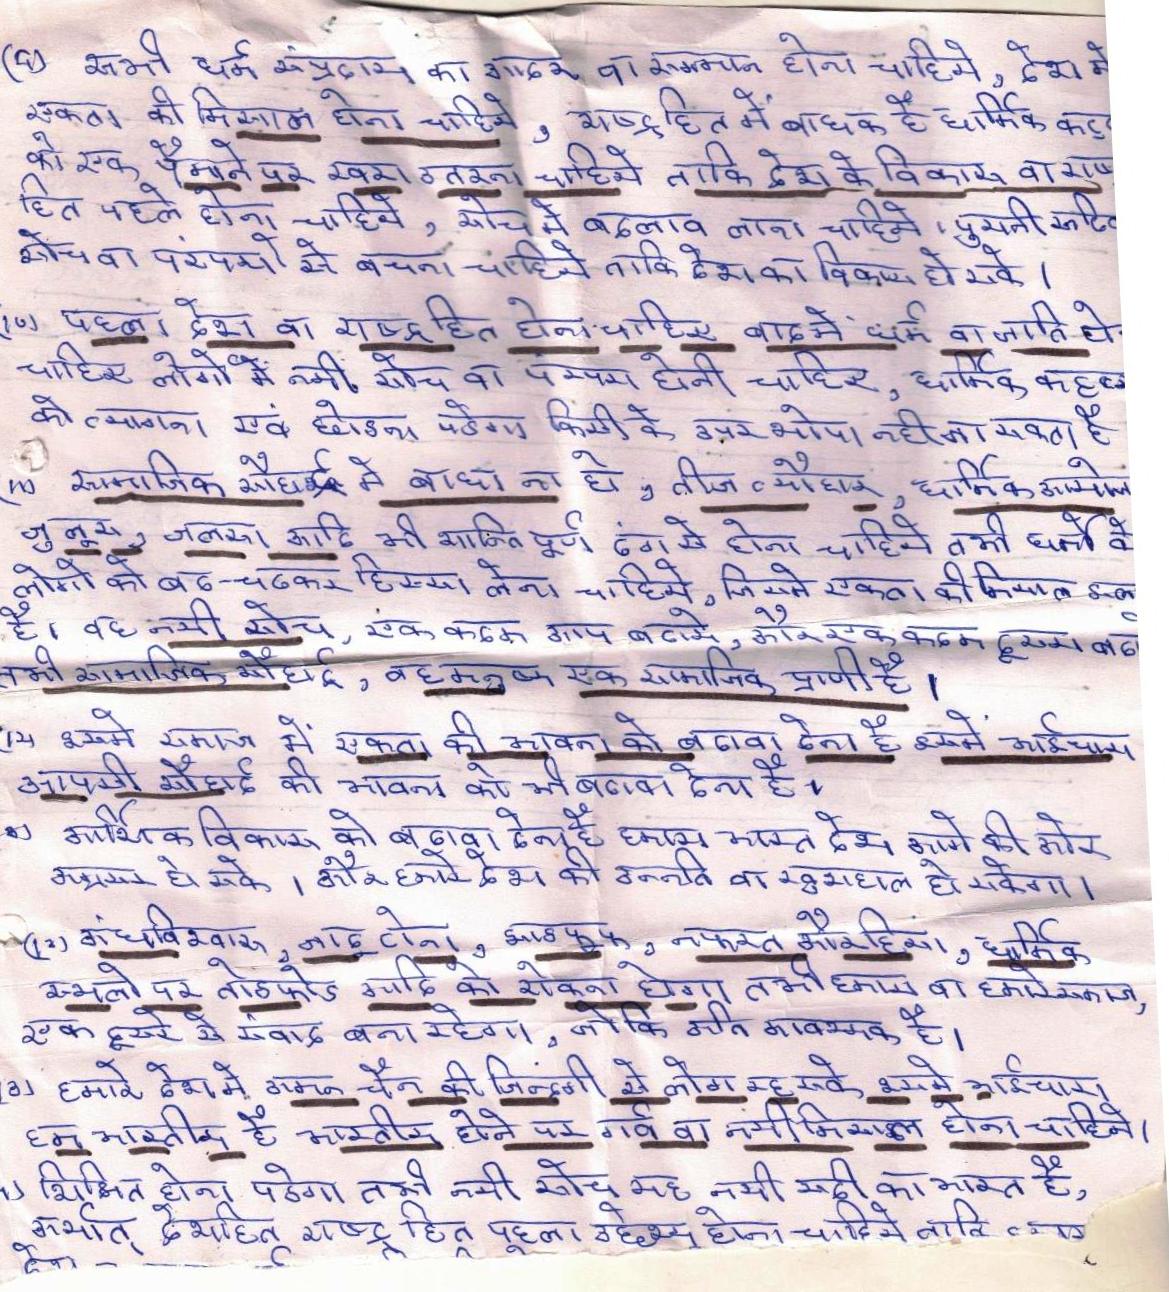 (9) सभी धर्म संप्रदाय का आदर वा सम्मान होना चाहिये, देश में
एकता की मिसाल होना चाहिये, राष्ट्रहित में बाधक है धार्मिक कट्ट
को एक पैमाने पर खरा उतरना चाहिये ताकि देश के विकास वा राष्
हित पहले होना चाहिये, सोच में बदलाव लाना चाहिये। पुरानी रूढि
सोच वा परंपरा से बचना चाहिये ताकि देश का विकास हो सके।
(10) पहला देश वा राष्ट्रहित होना चाहिए बाद में धर्म वा जाति हो
चाहिए लोगों में नयी सोच वा परंपरा होनी चाहिए, धार्मिक कट्टर
को त्यागना एवं छोडना पडेगा किसी के उपर थोपा नही जा सकता है
(11) सामाजिक सौहार्द्र में बाधा ना हो, तीज त्यौहार, धार्मिक आयोज
जुलूस, जलसा आदि भी शान्तिपूर्ण ढंग से होना चाहिये तभी धर्मो के
लोगों को बढ-चढकर हिस्सा लेना चाहिये, जिससे एकता की मिसाल
है। वह नयी सोच, एक कदम आप बढाये, और एक कदम दूसरा बढे
तभी सामाजिक सौहार्द्र, वह मनुष्य एक सामाजिक प्राणी है।
(12) इसमे समाज में एकता की भावना को बढावा देना है इसमें भाईचारा
आपसी सौहार्द की भावना को भी बढावा देना है।
आर्थिक विकास को बढावा देना है हमारा भारत देश आगे की ओर
अग्रसर हो सके। और हमारे देश की उन्नति वा खुशहाल हो सकेगा।
(12) अंधविश्वास, जादू टोना, झाडफूक, नफरत और हिंसा, धार्मिक
स्थलो पर तोडफोड आदि को रोकना होगा तभी हमारा वा हमारे समाज,
एक दूसरे से संवाद बना रहेगा, जोकि अति आवश्यक है।
(13) हमारे देश में अमन चैन की जिन्दगी से लोग रह सके इसमे भाईचारा
हम भारतीय है भारतीय होने पर गर्व वा नयी मिसाल होना चाहिये।
शिक्षित होना पडेगा तभी नयी सोच यह नयी सदी का भारत है,
अर्थात् देशहित राष्ट्रहित पहला उद्देश्य होना चाहिये ताकि